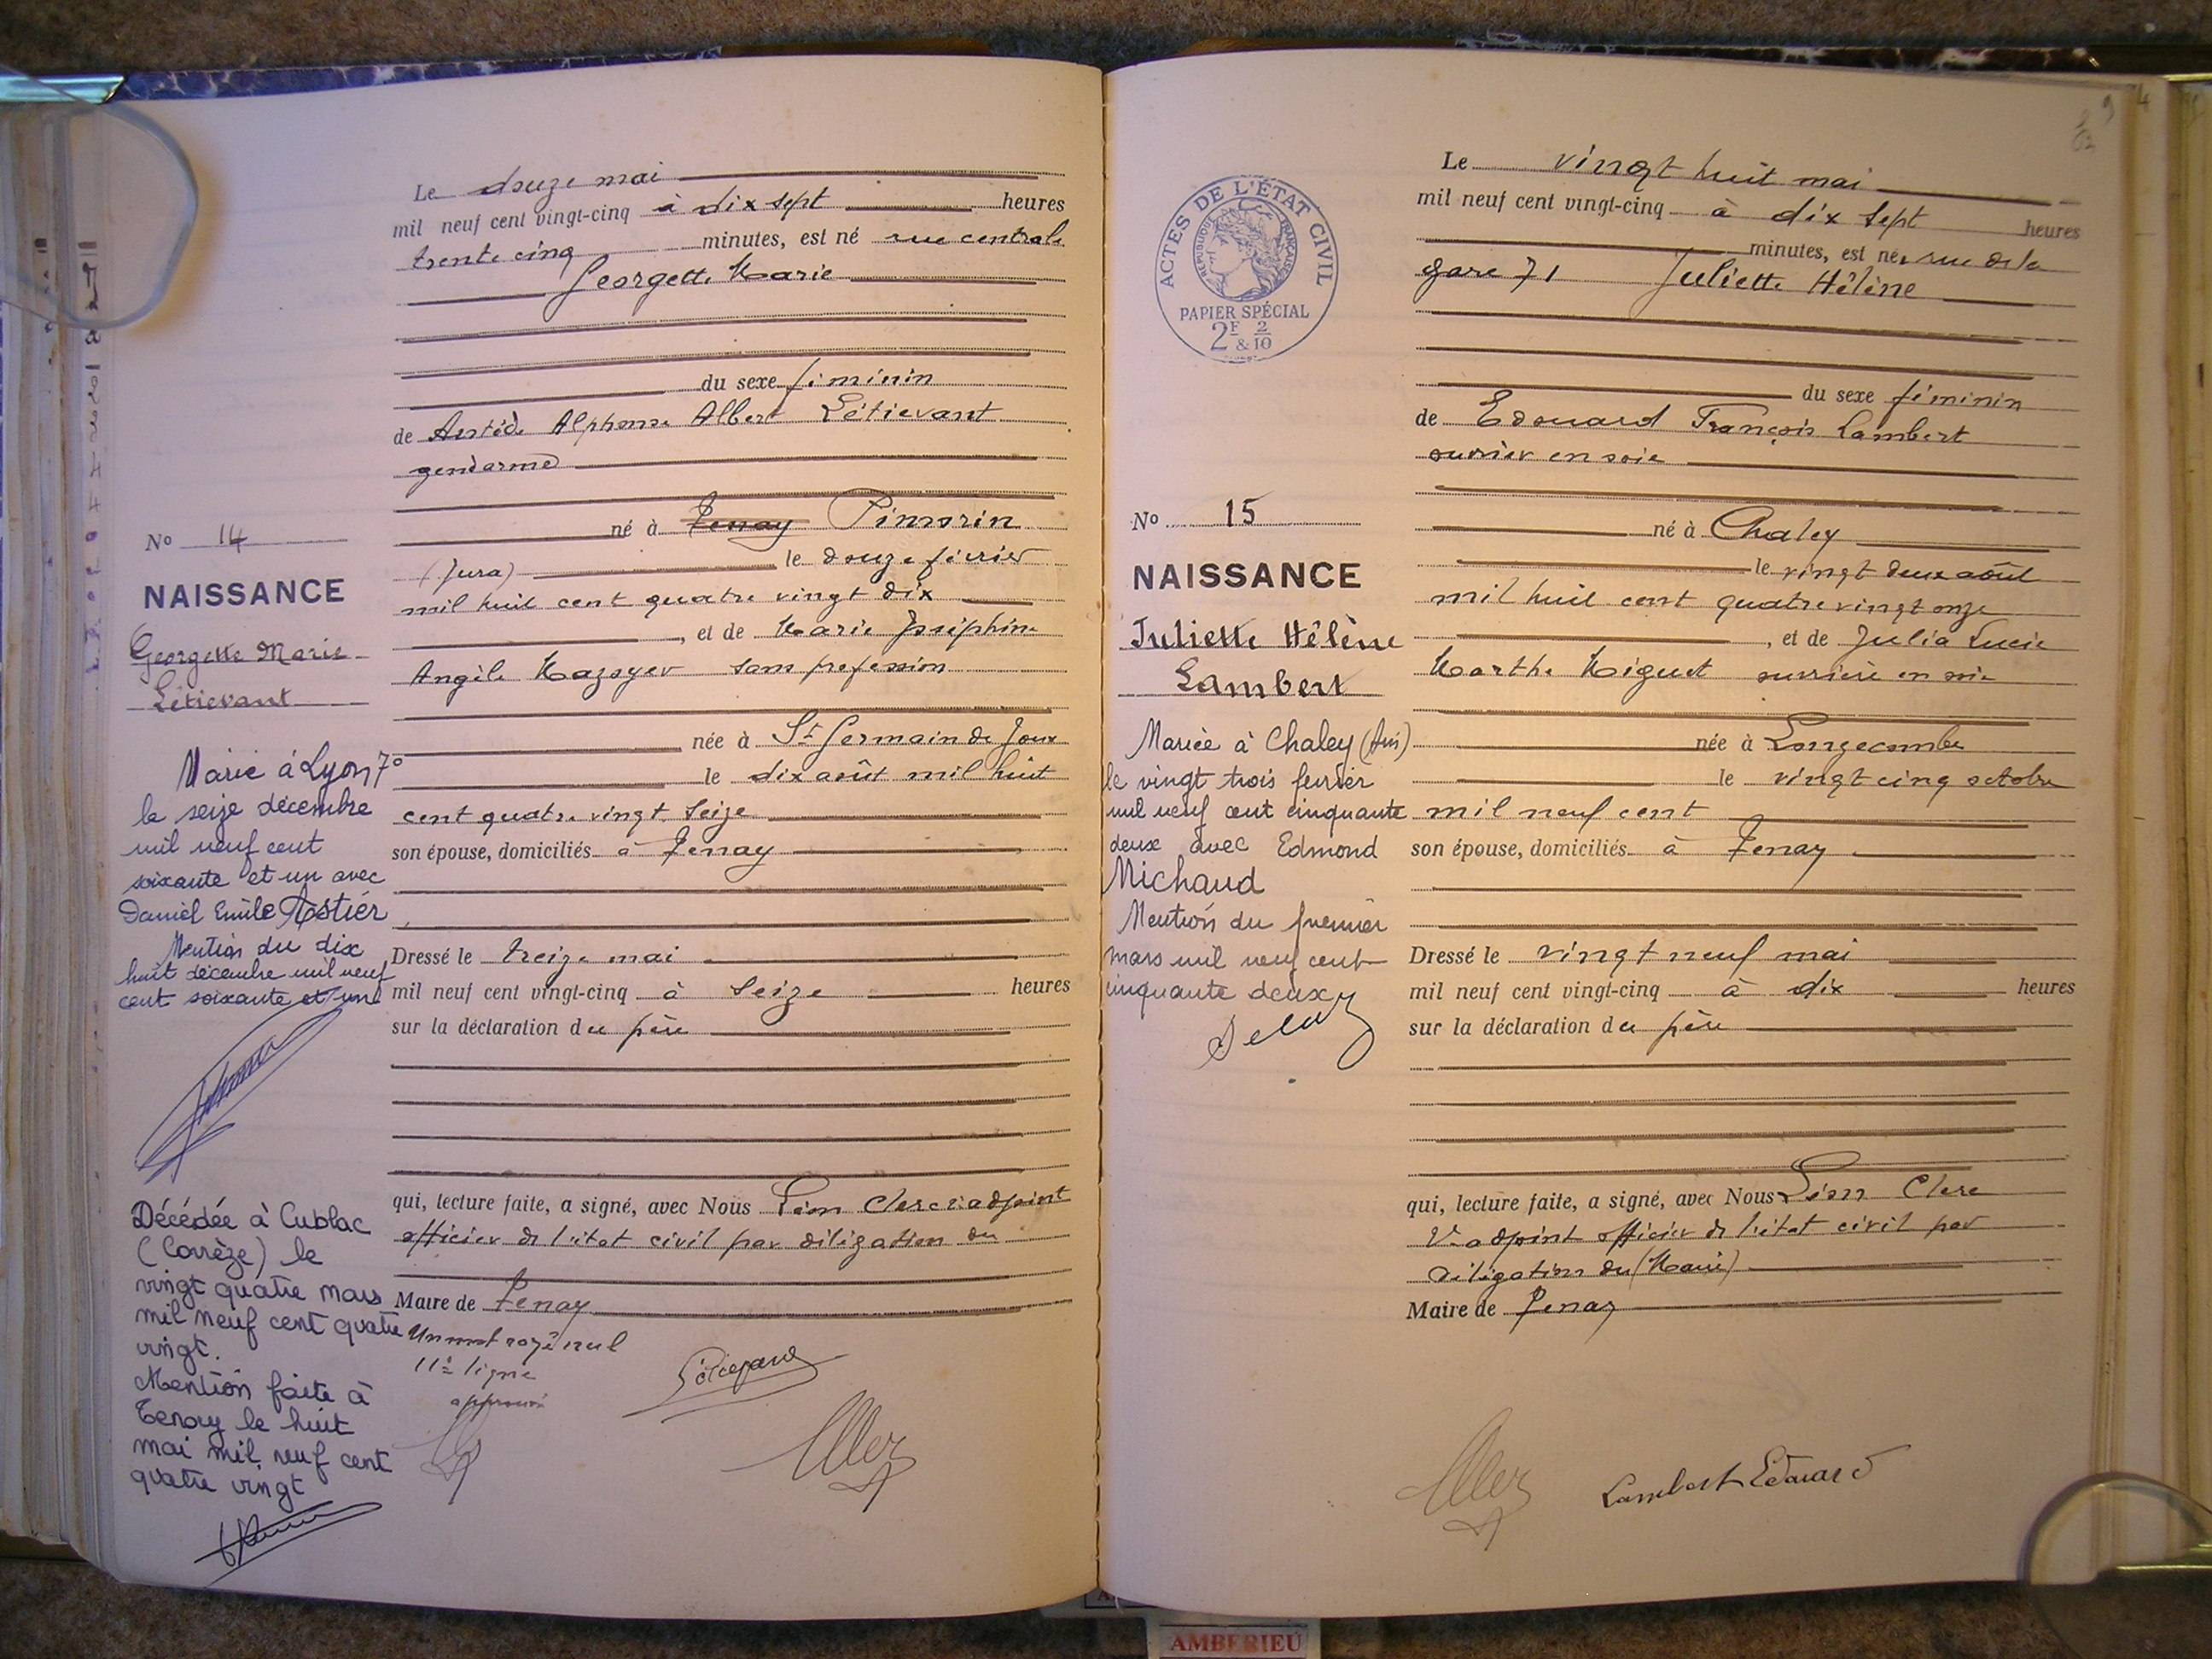 No 14
NAISSANCE
Georgette Marie
Létievant
Marié à Lyon 7°
le seize décembre
mil neuf cent
soixante et un avec
Daniel Emile Astier
Mention du dix
huit décembre mil neuf
cent soixante et un
Décédée à Cublac
(Corrèze) le
vingt quatre mars
mil neuf cent quatre
vingt.
Mention faite à
Tenay le huit
mai mil neuf cent
quatre vingt
Le douze mai
mil neuf cent vingt-cinq à dix sept heures
trente cinq minutes, est né rue centrale
Georgette Marie
du sexe féminin
de Alphonse Albert Létievant
gendarme
né à Tenay Pimorin
(Jura) le douze février
mil huit cent quatre vingt dix
, et de Marie Joséphine
Angèle Mazoyer sans profession
née à St Germain de Joux
le dix août mil huit
cent quatre vingt seize
son épouse, domiciliés à Tenay
Dressé le treize mai
mil neuf cent vingt-cinq à seize heures
sur la déclaration du père
qui, lecture faite, a signé, avec Nous Léon Clerc adjoint
officier de l'état civil par déligation du
Maire de Tenay
Un mot rayé nul
11e ligne
approuvé
ACTES DE L'ÉTAT CIVIL
RÉPUBLIQUE FRANÇAISE
PAPIER SPÉCIAL
2F & 2/10
No 15
NAISSANCE
Juliette Hélène
Lambert
Mariée à Chaley (Ain)
le vingt trois fevrier
mil neuf cent cinquante
deux avec Edmond
Michaud
Mention du premier
mars mil neuf cent
cinquante deux
Le vingt huit mai
mil neuf cent vingt-cinq à dix sept heures
minutes, est née rue de la
gare 71 Juliette Hélène
du sexe féminin
de Edouard François Lambert
ouvrier en soie
né à Chaley
le vingt deux août
mil huit cent quatre vingt onze
, et de Julia Lucie
Marthe Miguet ouvrière en soie
née à Longecombe
le vingt cinq octobre
mil neuf cent
son épouse, domiciliés à Tenay
Dressé le vingt neuf mai
mil neuf cent vingt-cinq à dix heures
sur la déclaration du père
qui, lecture faite, a signé, avec Nous Léon Clerc
adjoint officier de l'état civil par
déligation du (Maire)
Maire de Tenay
Lambert Edouard
AMBERIEU